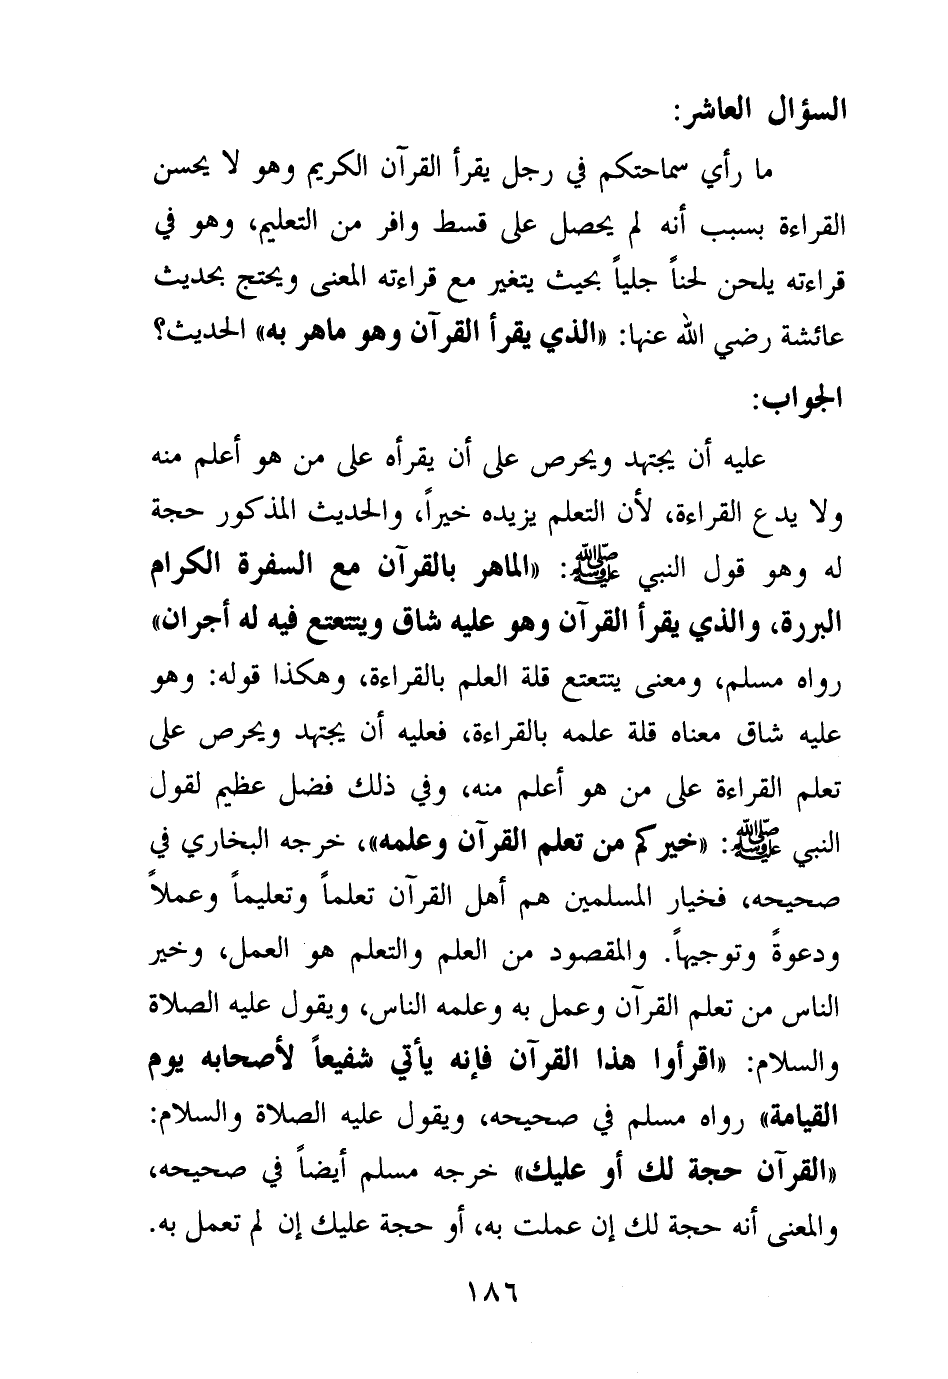 السؤال العاشر:
ما رأي سماحتكم في رجل يقرأ القرآن الكريم وهو لا يحسن
القراءة بسبب أنه لم يحصل على قسط وافر من التعليم، وهو في
قراءته يلحن لحناً جلياً بحيث يتغير مع قراءته المعنى ويحتج بحديث
عائشة رضي الله عنها: «الذي يقرأ القرآن وهو ماهر به» الحديث؟
الجواب:
عليه أن يجتهد ويحرص على أن يقرأه على من هو أعلم منه
ولا يدع القراءة، لأن التعلم يزيده خيراً، والحديث المذكور حجة
له وهو قول النبي ﷺ: «الماهر بالقرآن مع السفرة الكرام
البررة، والذي يقرأ القرآن وهو عليه شاق ويتتعتع فيه له أجران»
رواه مسلم، ومعنى يتتعتع قلة العلم بالقراءة، وهكذا قوله: وهو
عليه شاق معناه قلة علمه بالقراءة، فعليه أن يجتهد ويحرص على
تعلم القراءة على من هو أعلم منه، وفي ذلك فضل عظيم لقول
النبي ﷺ: «خيركم من تعلم القرآن وعلمه»، خرجه البخاري في
صحيحه، فخيار المسلمين هم أهل القرآن تعلماً وتعليماً وعملاً
ودعوةً وتوجيهاً. والمقصود من العلم والتعلم هو العمل، وخير
الناس من تعلم القرآن وعمل به وعلمه الناس، ويقول عليه الصلاة
والسلام: «اقرأوا هذا القرآن فإنه يأتي شفيعاً لأصحابه يوم
القيامة» رواه مسلم في صحيحه، ويقول عليه الصلاة والسلام:
«القرآن حجة لك أو عليك» خرجه مسلم أيضاً في صحيحه،
والمعنى أنه حجة لك إن عملت به، أو حجة عليك إن لم تعمل به.
١٨٦